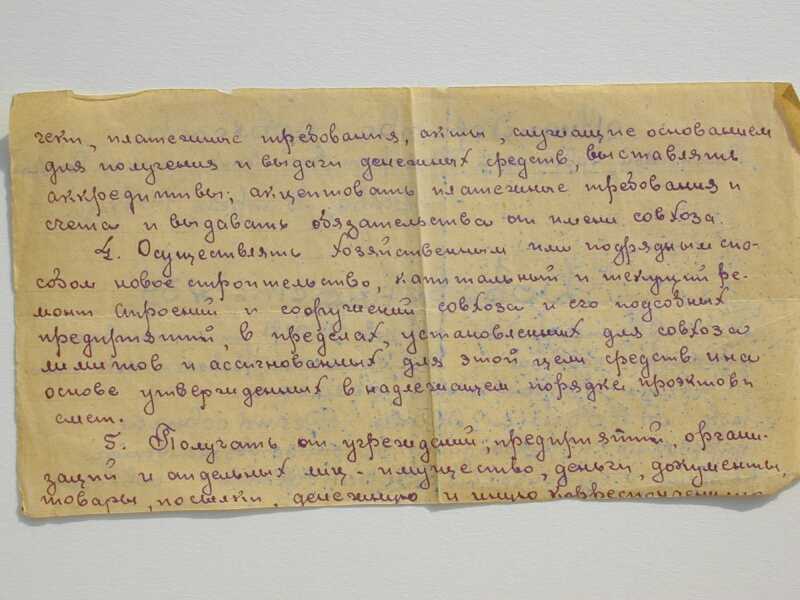 чеки, платежные требования, акты, служащие основанием
для получения и выдачи денежных средств, выставлять
аккредитивы; акцептовать платежные требования и
счета и выдавать обязательства от имени совхоза.
4. Осуществлять хозяйственным или подрядным спо-
собом новое строительство, капитальный и текущий ре-
монт строений и сооружений совхоза и его подсобных
предприятий, в пределах, установленных для совхоза
лимитов и ассигнованных для этой цели средств и на
основе утвержденных в надлежащем порядке проэктов и
смет.
5. Получать от учреждений, предприятий, органи-
заций и отдельных лиц - имущество, деньги, документы,
товары, посылки, денежную и иную корреспонденцию